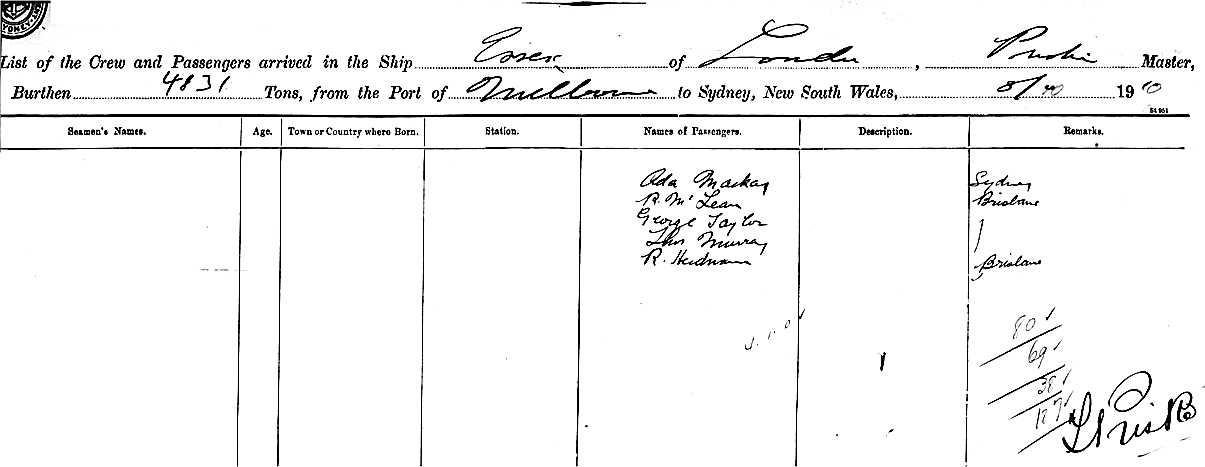 List of the Crew and Passengers arrived in the Ship Essex of London, Master,
Burthen 4831 Tons, from the Port of Melbourne to Sydney, New South Wales, 1910
54 951
Seamen's Names. Age. Town or Country where Born. Station. Names of Passengers. Description. Remarks.
Ada Mackay Sydney
R. McLean Brisbane
George Taylor
Thos Murray
R. Brisbane
80
69
38
187